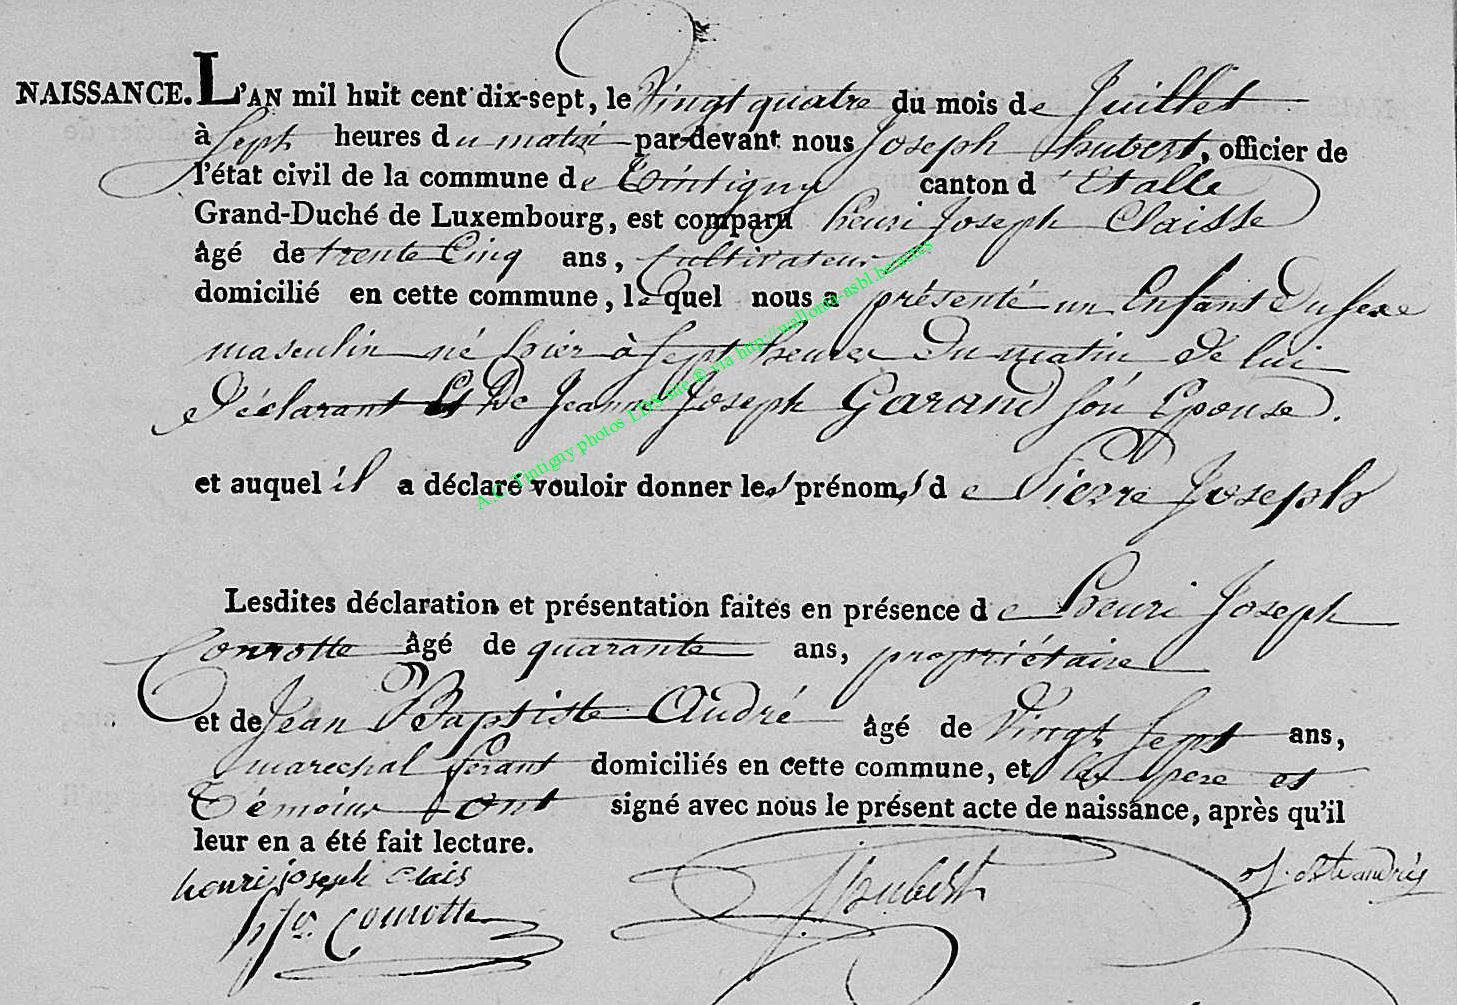 NAISSANCE. L'AN mil huit cent dix-sept, le Vingt quatre du mois de Juillet
à Sept heures du matin par-devant nous Joseph hubert, officier de
l'état civil de la commune de Tintigny canton d'Etalle
Grand-Duché de Luxembourg, est comparu henri Joseph Claisse
âgé de trente Cinq ans, Cultivateur
domicilié en cette commune, lequel nous a présenté un Enfant du sexe
masculin né hier à sept heures du matin de lui
Déclarant Et De Jeanne Joseph Garand son Epouse.
et auquel il a déclaré vouloir donner les prénoms de Pierre Joseph
Lesdites déclaration et présentation faites en présence de henri Joseph
Conrotte âgé de quarante ans, propriétaire
et de Jean Baptiste André âgé de Vingt Sept ans,
marechal ferant domiciliés en cette commune, et les pere et
Témoins ont signé avec nous le présent acte de naissance, après qu'il
leur en a été fait lecture.
henri joseph Clais
h jo. Conrotte
hubert
A.C. Tintigny photos LDS site © via http://wallonia-asbl.be/actes